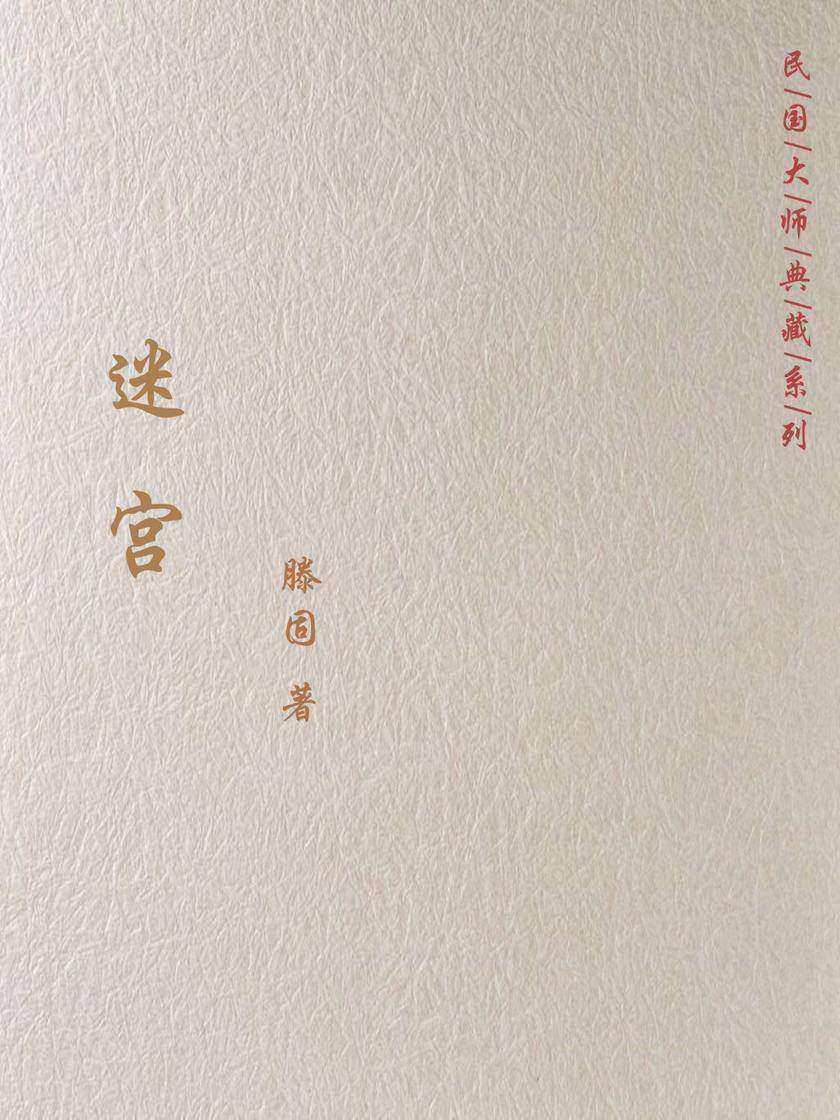 民/国/大/师/典/藏/系/列
迷宫
滕固 著